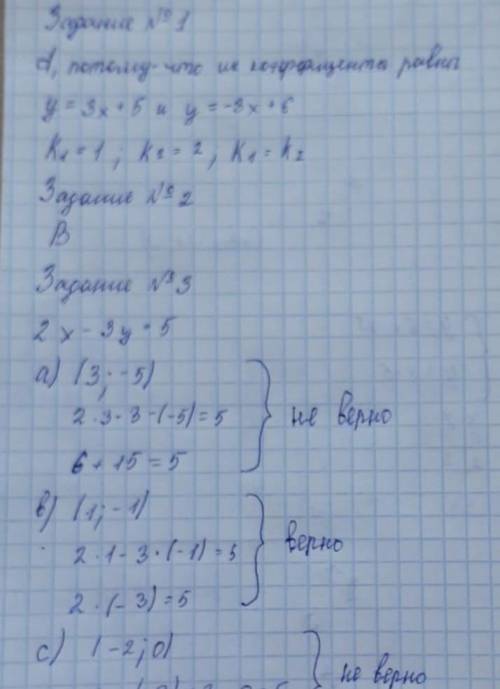 Задание №1
А, потому что их коэффиценты равны
y = 3x + 5 и y = -3x + 6
K₁ = 1 ; K₂ = 2 ; K₁ = K₂
Задание №2
B
Задание №3
2x - 3y = 5
a) (3; -5)
2·3-3-(-5) = 5
6 + 15 = 5
не верно
b) (1; -1)
2·1-3·(-1) = 5
2·(-3) = 5
верно
c) (-2; 0)
не верно